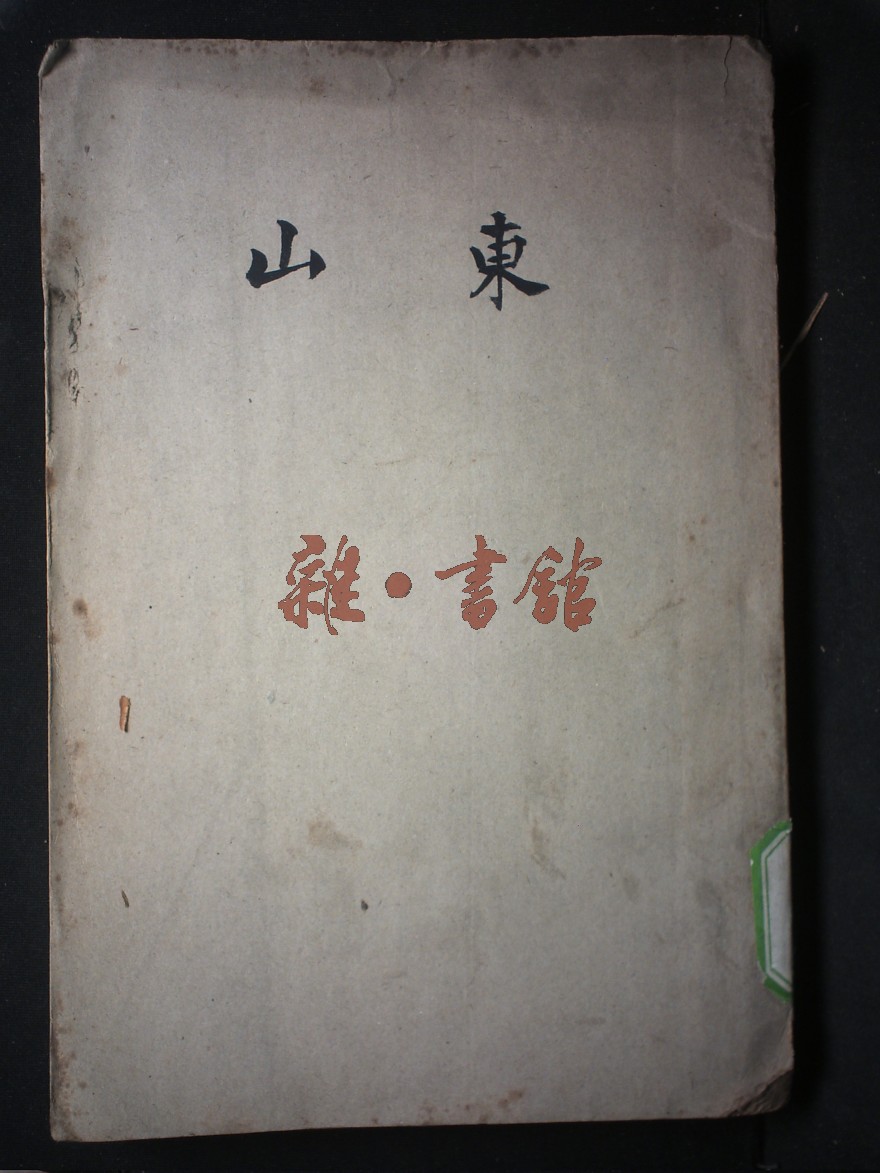 山東
雜·書館